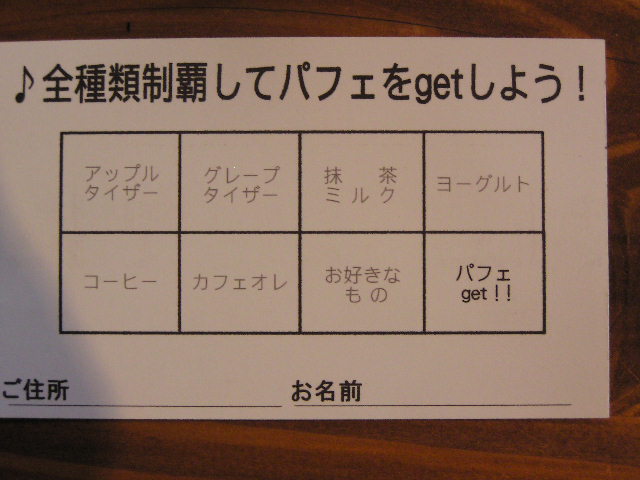 ♪全種類制覇してパフェをgetしよう！
アップル
タイザー
グレープ
タイザー
抹　茶
ミルク
ヨーグルト
コーヒー
カフェオレ
お好きな
もの
パフェ
get！！
ご住所
お名前